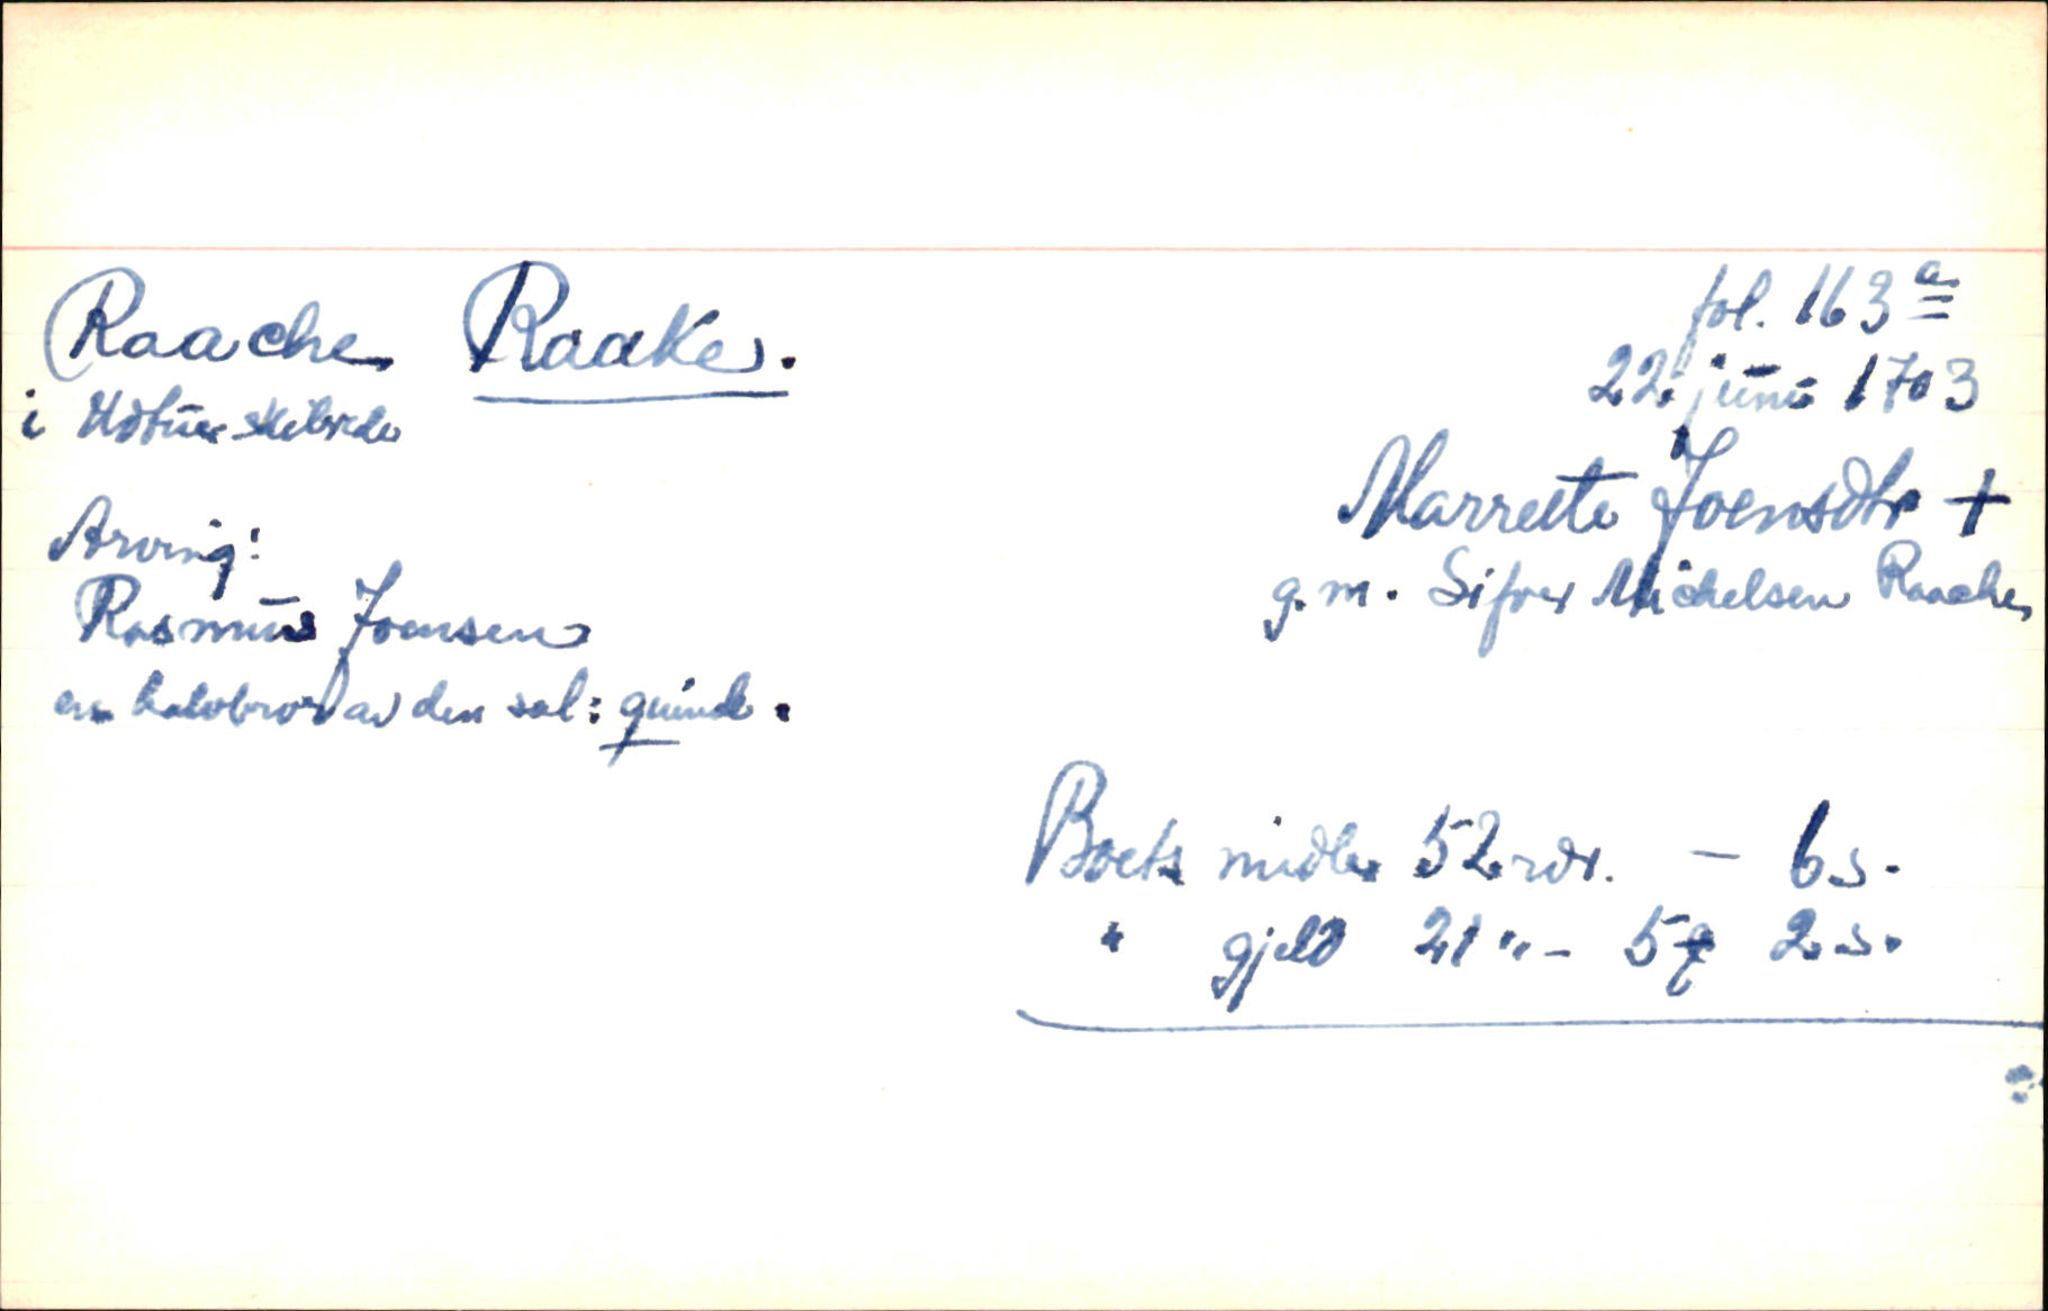 Raache Raake.
fol. 163 a
i Udtuer skibrede
22. juni 1703
Marrette Joensdtr +
g. m. Sifver Michelsen Raache
Arving:
Rasmus Joensen
en halvbror av den sal: quinde.
Boets midler 52 rdr. - 6 s.
" gjeld 21 " - 5 q 2 s.